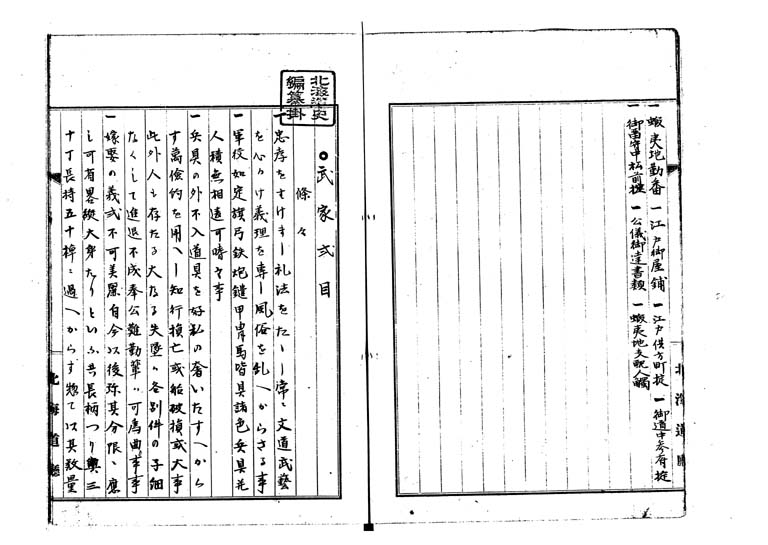 一 蝦夷地勤番 一 江戸御屋鋪 一 江戸供方町掟 一 御道中参府掟
一 御留守中松前掟 一 公儀御達書類 一 蝦夷地支配人觸
北海道廳
北海道史
編纂掛
○武家式目
條々
一 忠孝をすけまし礼法をたゝし常ニ文道武藝
を心かけ義理を専し風俗を乱へからさる事
一 軍役如定旗弓鉄炮鎧甲冑馬皆具諸色兵具并
人積無相違可嗜事
一 兵具の外不入道具を好私の奢いたすへから
す萬儉約を用へし知行損亡或船破損或大事
此外人も存たる大なる失墜ハ各別件の子細
なくして進退不成奉公難勤輩ハ可為曲事事
一 嫁娶の義式不可美麗自今以後弥其分限ニ應
し可省畧縦大身たりといふ共長柄つり輿三
十丁長持五十棹ニ過へからす惣て以其数量
北海道廳